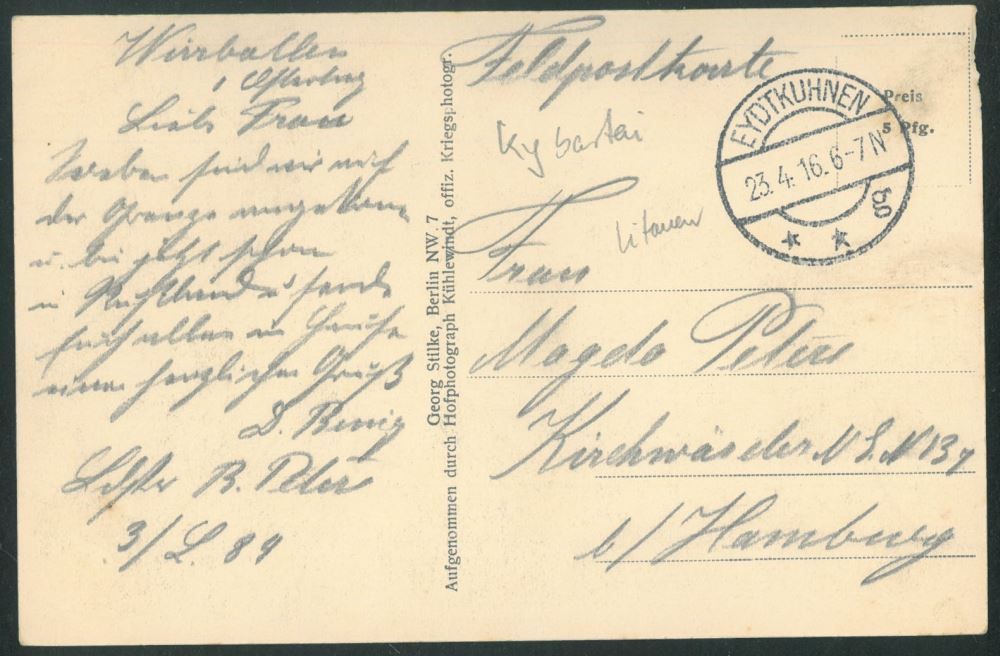 Wirballen
1 Osterbeg
Liebe Frau
Soeben sind wir auf
der Grenze angekom
u. bei jetzt schon
in Rußland u sende
Euch allen zu Hause
einen herzlichen Gruß
D.
Ldstr R. Peters
3/L. 89
Georg Stilke, Berlin NW. 7
Aufgenommen durch Hofphotograph Kühlewindt, offiz. Kriegsphotogr.
Feldpostkarte
Kybartai
Litauen
EYDTKUHNEN
23.4.16.6-7N
* * b
Preis
5 Pfg.
Frau
Magda Peters
Kirchwärder N 137
b/Hamburg